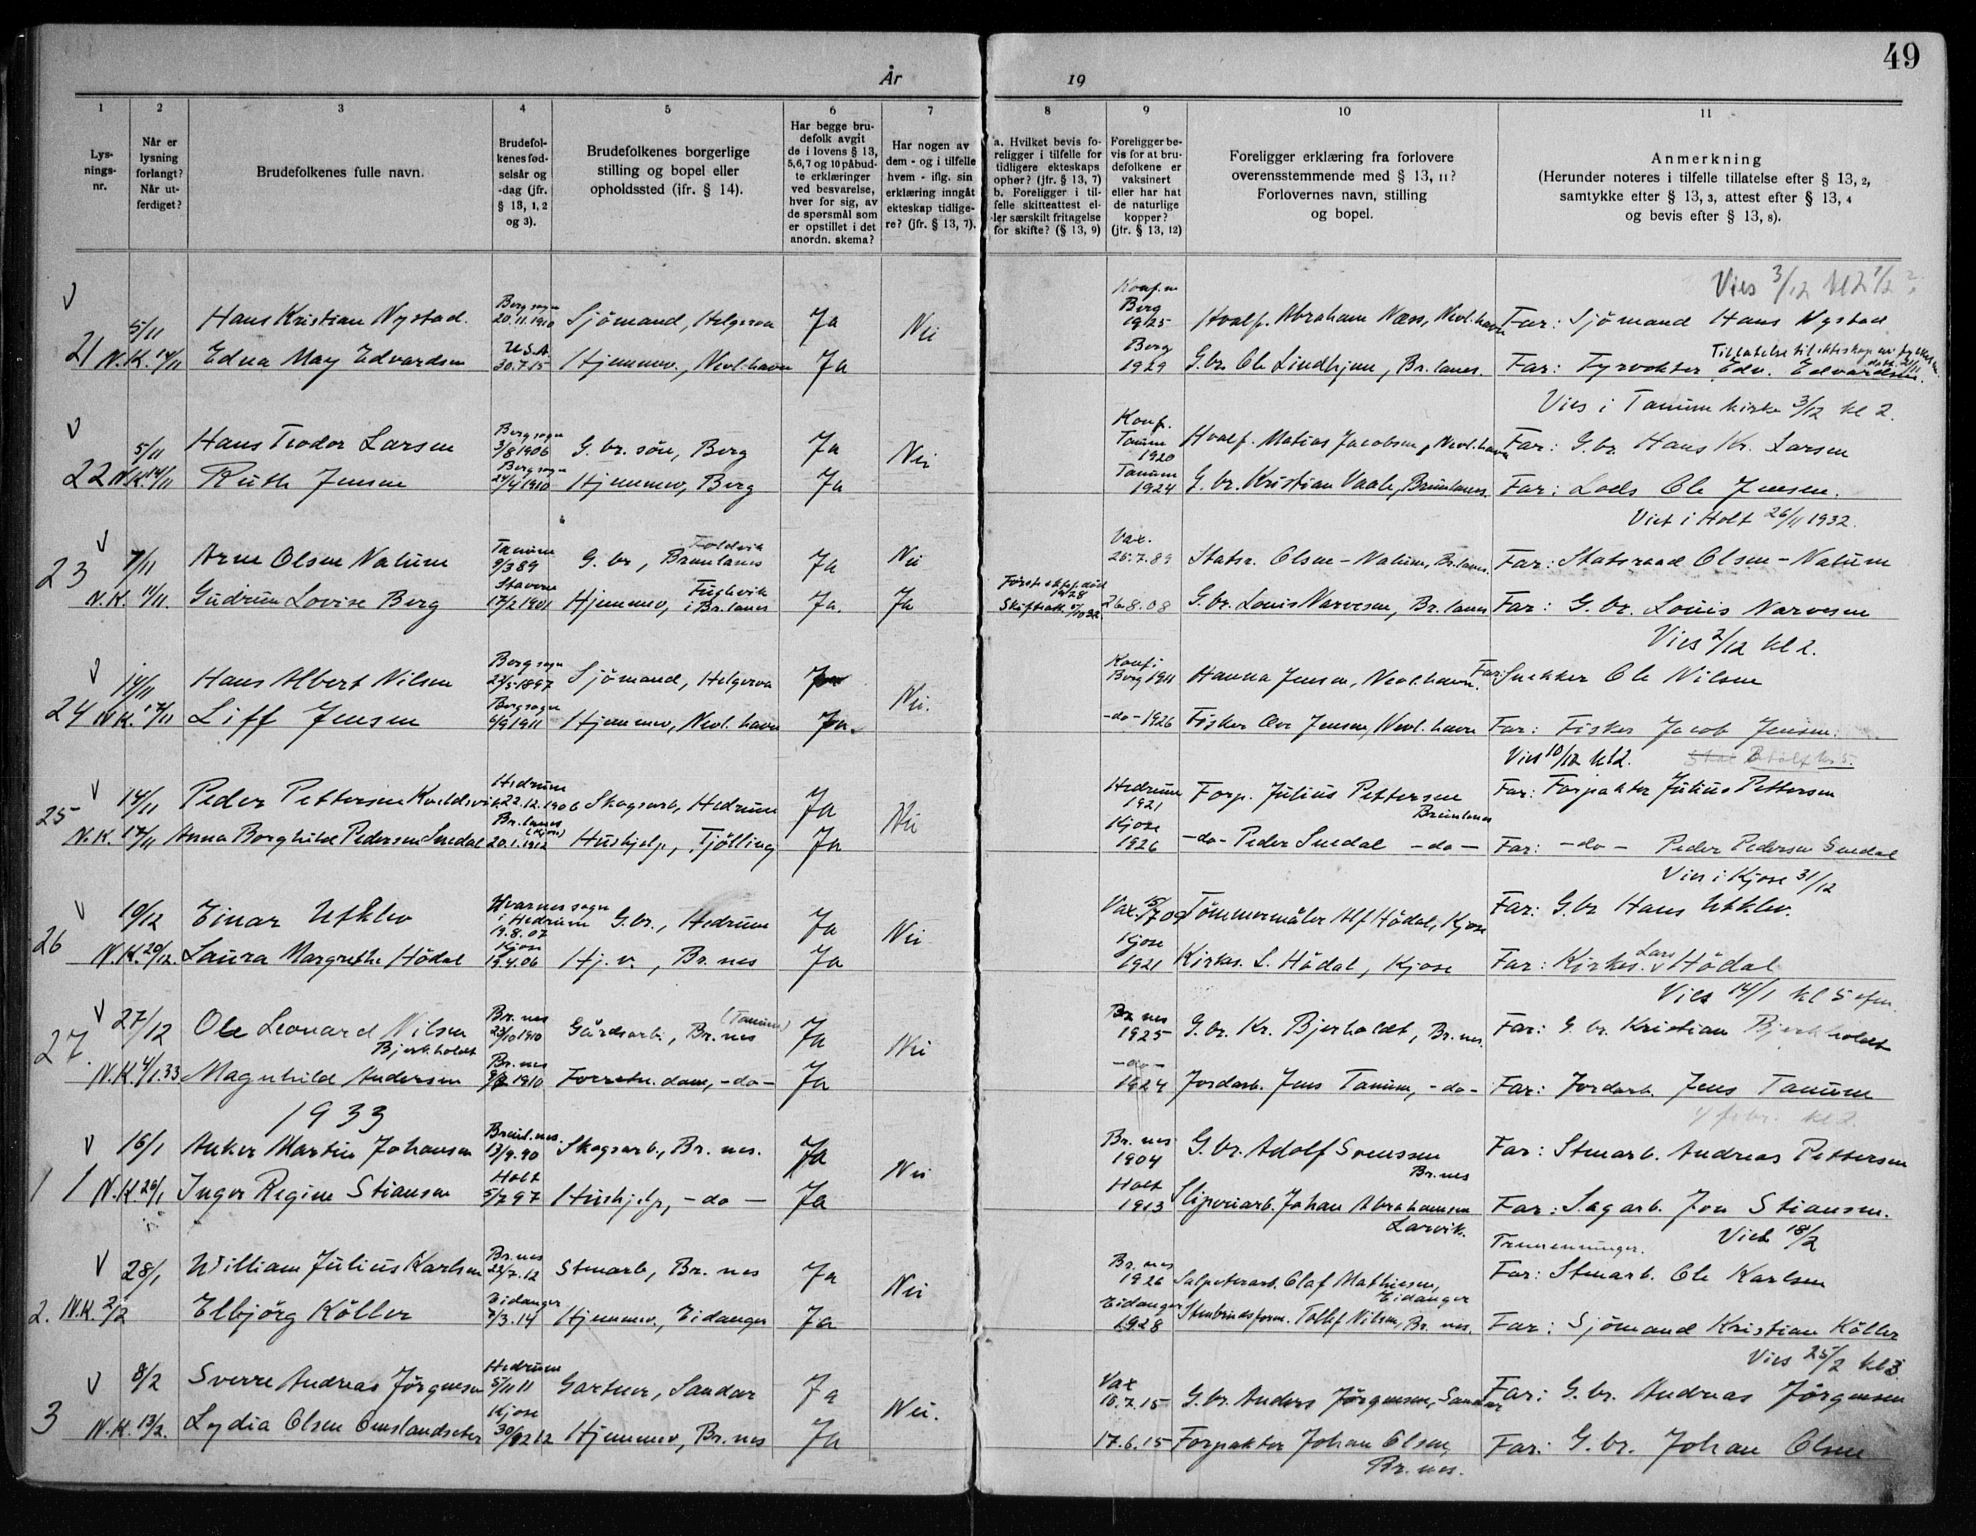 49
År 19
1 2 3 4 5 6 7 8 9 10 11
Lys-
nings-
nr.
Når er
lysning
forlangt?
Når ut-
ferdiget?
Brudefolkenes fulle navn.
Brudefol-
kenes fød-
selsår og
-dag (jfr.
§ 13, 1, 2
og 3).
Brudefolkenes borgerlige
stilling og bopel eller
opholdssted (ifr. § 14).
Har begge bru-
defolk avgit
de i lovens § 13,
5,6,7 og 10 påbud-
te erklæringer
ved besvarelse,
hver for sig, av
de spørsmål som
er opstillet i det
anordn. skema?
Har nogen av
dem - og i tilfelle
hvem - iflg. sin
erklæring inngåt
ekteskap tidlige-
re? (jfr. § 13, 7).
a. Hvilket bevis fo-
religger i tilfelle for
tidligere ekteskaps
ophør? (jfr. § 13, 7)
b. Foreligger i til-
felle skifteattest el-
ler særskilt fritagelse
for skifte? (§ 13, 9)
Foreligger be-
vis for at bru-
defolkene er
vaksinert
eller har hat
de naturlige
kopper?
(jfr. § 13, 12)
Foreligger erklæring fra forlovere
overensstemmende med § 13, 11?
Forlovernes navn, stilling
og bopel.
Anmerkning
(Herunder noteres i tilfelle tillatelse efter § 13, 2,
samtykke efter § 13, 3, attest efter § 13, 4
og bevis efter § 13, 8).
Vies 3/12 kl 2 1/2
V 5/11 Hans Kristian Nystad. Berg sogn 20.11.1910 Sjömand, Helgeroa Ja Nei Konf. Berg 1925 Hvalf. Abraham Næss, Nevl.havn Far: Sjömand Hans Nystad
21 N.K. 14/11 Edna May Edvardsen U.S.A. 30.7.15 Hjemmev., Nevl.havn Ja Berg 1929 G.br. Ole Lindhjem, Br.lanes. Far: Fyrvokter Edv. Edvardsen.
Vies i Tanum kirke 3/12 kl 2.
V 5/11 Hans Teodor Larsen Berg sogn 3/8 1906 G. br. sön, Berg Ja Nei Konf. Tanum 1920 Hvalf. Matias Jacobsen, Nevl.havn Far: G.br. Hans Kr. Larsen
22 N.K. 14/11 Ruth Jensen Berg sogn 24/4 1910 Hjemmev, Berg Ja Tanum 1924 G. br. Kristian Vaale, Brunlanes. Far: Lods Ole Jensen.
Viet i Holt 26/11 1932.
V 23 7/11 Arne Olsen Nalum Tanum 9/3 89 G. br, Brunlanes Ja Nei Vax. 25.7.89 Statsr. Olsen-Nalum, Br.lanes. Far: Statsraad Olsen-Nalum
N.K. 14/11. Gudrun Lovise Berg Stavern 17/2 1901 Hjemmev, i Br.lanes Ja. Ja 26.8.08 G.br. Louis Narvesen, Br.lanes Far: G. br. Louis Narvesen
Vies 2/12 kl 2.
V 14/11 Hans Albert Nilsen Berg sogn 23/5-1897 Sjömand, Helgeroa Ja Nei. Konf i Berg 1911 Hanna Jensen, Nevl.havn. Far: Snekker Ole Nilsen
24 N.K. 17/11 Liff Jensen Berg sogn 6/9 1911 Hjemmev, Nevl. havn Ja. -do- 1926 Fisker Ove Jensen, Nevl. havn Far: Fisker Jacob Jensen.
Vies 10/12 kl 2.
V 25 14/11 Peder Pettersen Hedrum 22.12.1906 Skogsarb, Hedrum Ja Nei Hedrum 1921 Forp. Julius Pettersen Brunlanes Far: Forpakter Julius Pettersen
N.K. 17/11 Anna Borghild Pedersen Smedal Br.lanes (Kjose) 20.1.1912 Hushjelp, Tjölling Ja Kjose 1926 -do- Peder Smedal -do- Far: -do- Peder Pedersen Smedal
Vies i Kjose 31/12
V 19/12 Einar Utklev Hvarnes sogn i Hedrum 19.8.07 G.br., Hedrum Ja Nei Vax. Tömmermåler Alf Hödal, Kjose Far: G.br Hans Utklev.
26 N.K. 20/12. Laura Margrethe Hödal Kjose 19.4.06 Hj.v., Br.nes Ja Kjose 1921 Kirkes. L. Hödal, Kjose Far: Kirkes. Lars Hödal
Vies 14/1 kl 5 efm.
V 27. 27/12 Ole Leonard Nilsen Bjerkholdt Br. nes 23/10 1910 Gårdsarb., Br. nes (Tanum) Ja Nei Br nes 1925 G.br. Kr. Bjerkoldt, Br.nes. Far: G. br. Kristian Bjerkholdt
N.K. 4/1.33 Magnhild Andersen Br.nes 1910 Forretn.dam, -do- Ja -do- 1924 Jordarb. Jens Tanum, -do- Far: Jordarb. Jens Tanum
1933
V 16/1 Anker Martin Johansen Brunl.nes. 13/9.90 Skogsarb., Br. nes. Ja Nei Br. nes 1904 G. br. Adolf Svensson Br.nes Far: Stenarb. Andreas Pettersen
1 N.K. 26/1 Inger Regine Stiansen Holt 5/2 97 Hushjelp, -do- Ja Holt 1913 Sliperiarb. Johan Abrahamsen Larvik. Far: Sagarb. Jon Stiansen.
Viet 18/2
V 28/1 William Julius Karlsen Br.nes 22/7.12 Stenarb, Br. nes Ja Nei Br. nes 1926 Salpeterarb. Olaf Mathisen, Eidanger Far: Stenarb. Ole Karlsen
2. N.K. 2/2 Elbjörg Köller Eidanger 7/3.14 Hjemmev, Eidanger Ja Eidanger 1928 Stenbruddsform. Tollef Nilsen, Br. nes. Far: Sjömand Kristian Köller
Vies 25/2 kl 3
V 8/2 Sverre Andreas Jörgensen Hedrum 5/11 11 Gartner, Sandar Ja Nei. Vax 10.7.15 G.br. Anders Jörgensen, Sandar Far: G. br. Andreas Jörgensen
3 N.K. 13/2. Lydia Olsen Omslandseter Kjose 30/12 12 Hjemmev, Br.nes Ja 17.6.15 Forpakter Johan Olsen, Br. nes. Far: G. br. Johan Olsen